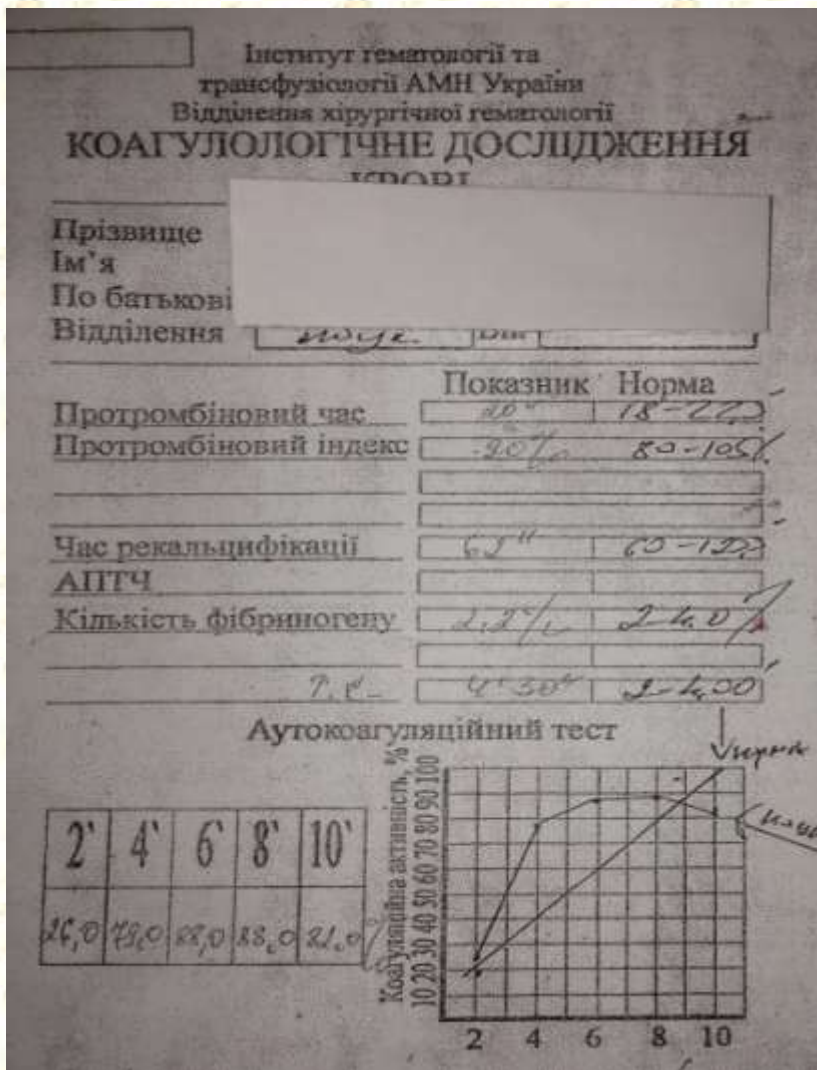 Інститут гематології та
трансфузіології АМН України
Відділення хірургічної гематології
КОАГУЛОЛОГІЧНЕ ДОСЛІДЖЕННЯ
КРОВІ
Прізвище
Ім’я
По батькові
Відділення
Показник Норма
Протромбіновий час 20" 18-22
Протромбіновий індекс 90% 80-105%
Час рекальцифікації 62" 60-120
АПТЧ
Кількість фібриногену 2,2 2-4,0
4'30" 2-4,00
Аутокоагуляційний тест
2` 4` 6` 8` 10`
26,0 79,0 88,0 88,0 82,0
Коагуляційна активність, %
10 20 30 40 50 60 70 80 90 100
2 4 6 8 10